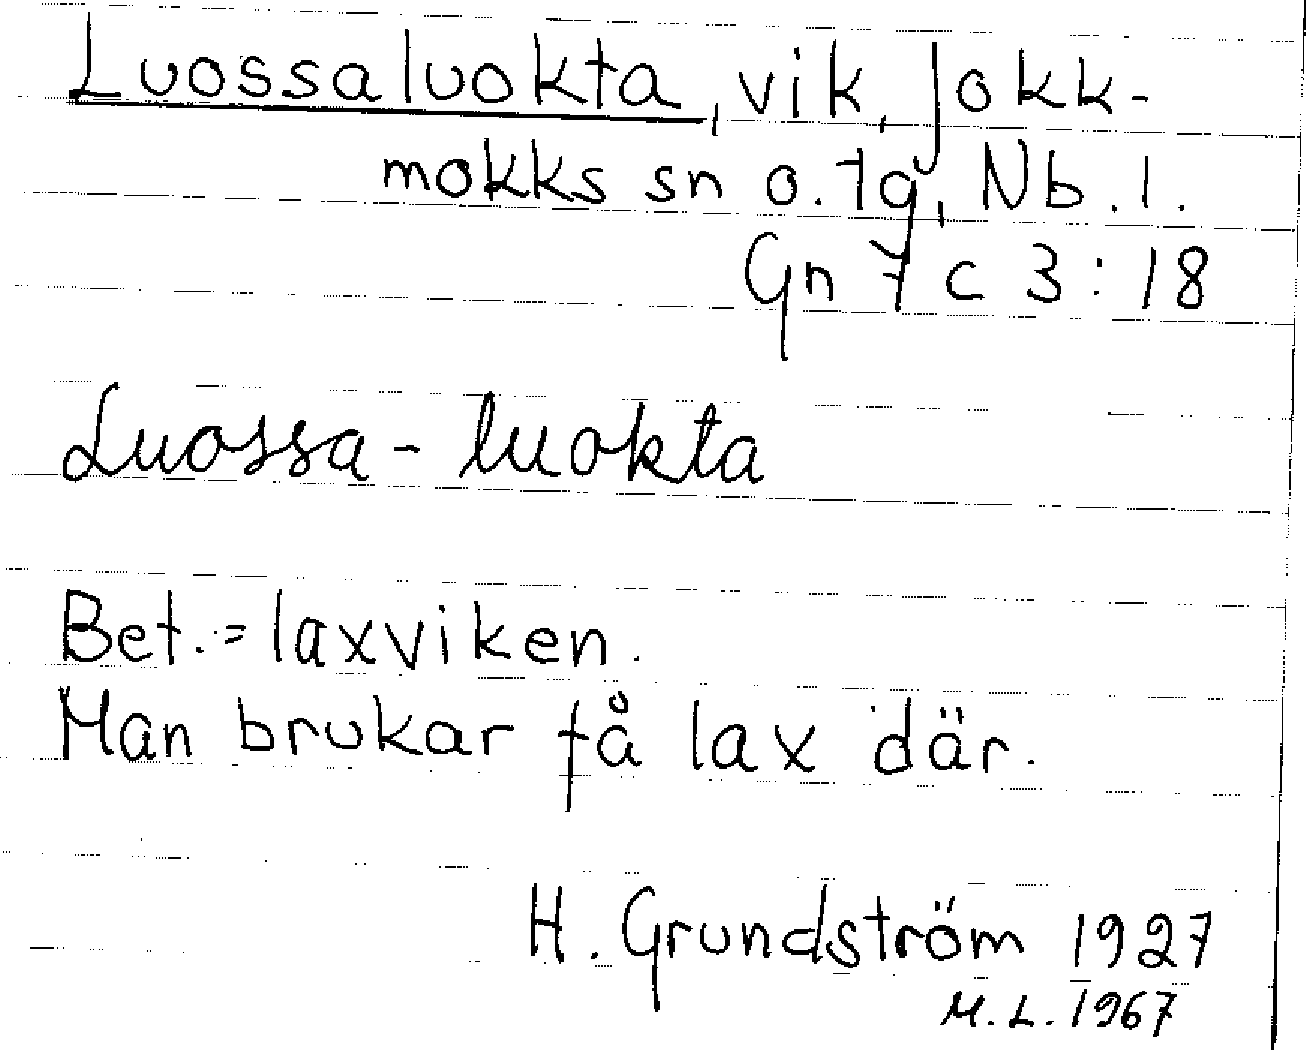 Luossaluokta, vik, Jokk-
mokks sn o. tg, Nb. l.
Gn 7 c 3:18
Luossa-luokta
Bet. = laxviken.
Man brukar få lax där.
H. Grundström 1927
M. L. 1967